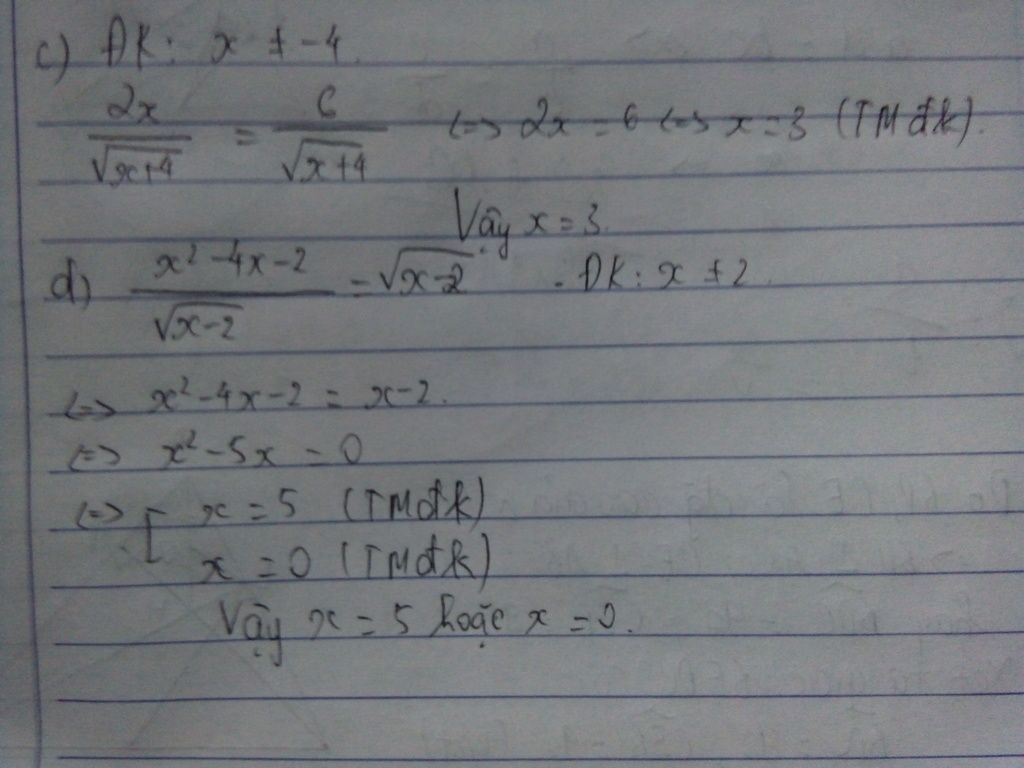 c) ĐK: x ≠ -4.
2x/√(x+4) = 6/√(x+4) <=> 2x = 6 <=> x = 3 (TMđk).
Vậy x = 3.
d) (x² - 4x - 2)/√(x-2) = √(x-2). ĐK: x ≠ 2.
<=> x² - 4x - 2 = x - 2.
<=> x² - 5x = 0
<=> [ x = 5 (TMđk)
x = 0 (TMđk)
Vậy x = 5 hoặc x = 0.